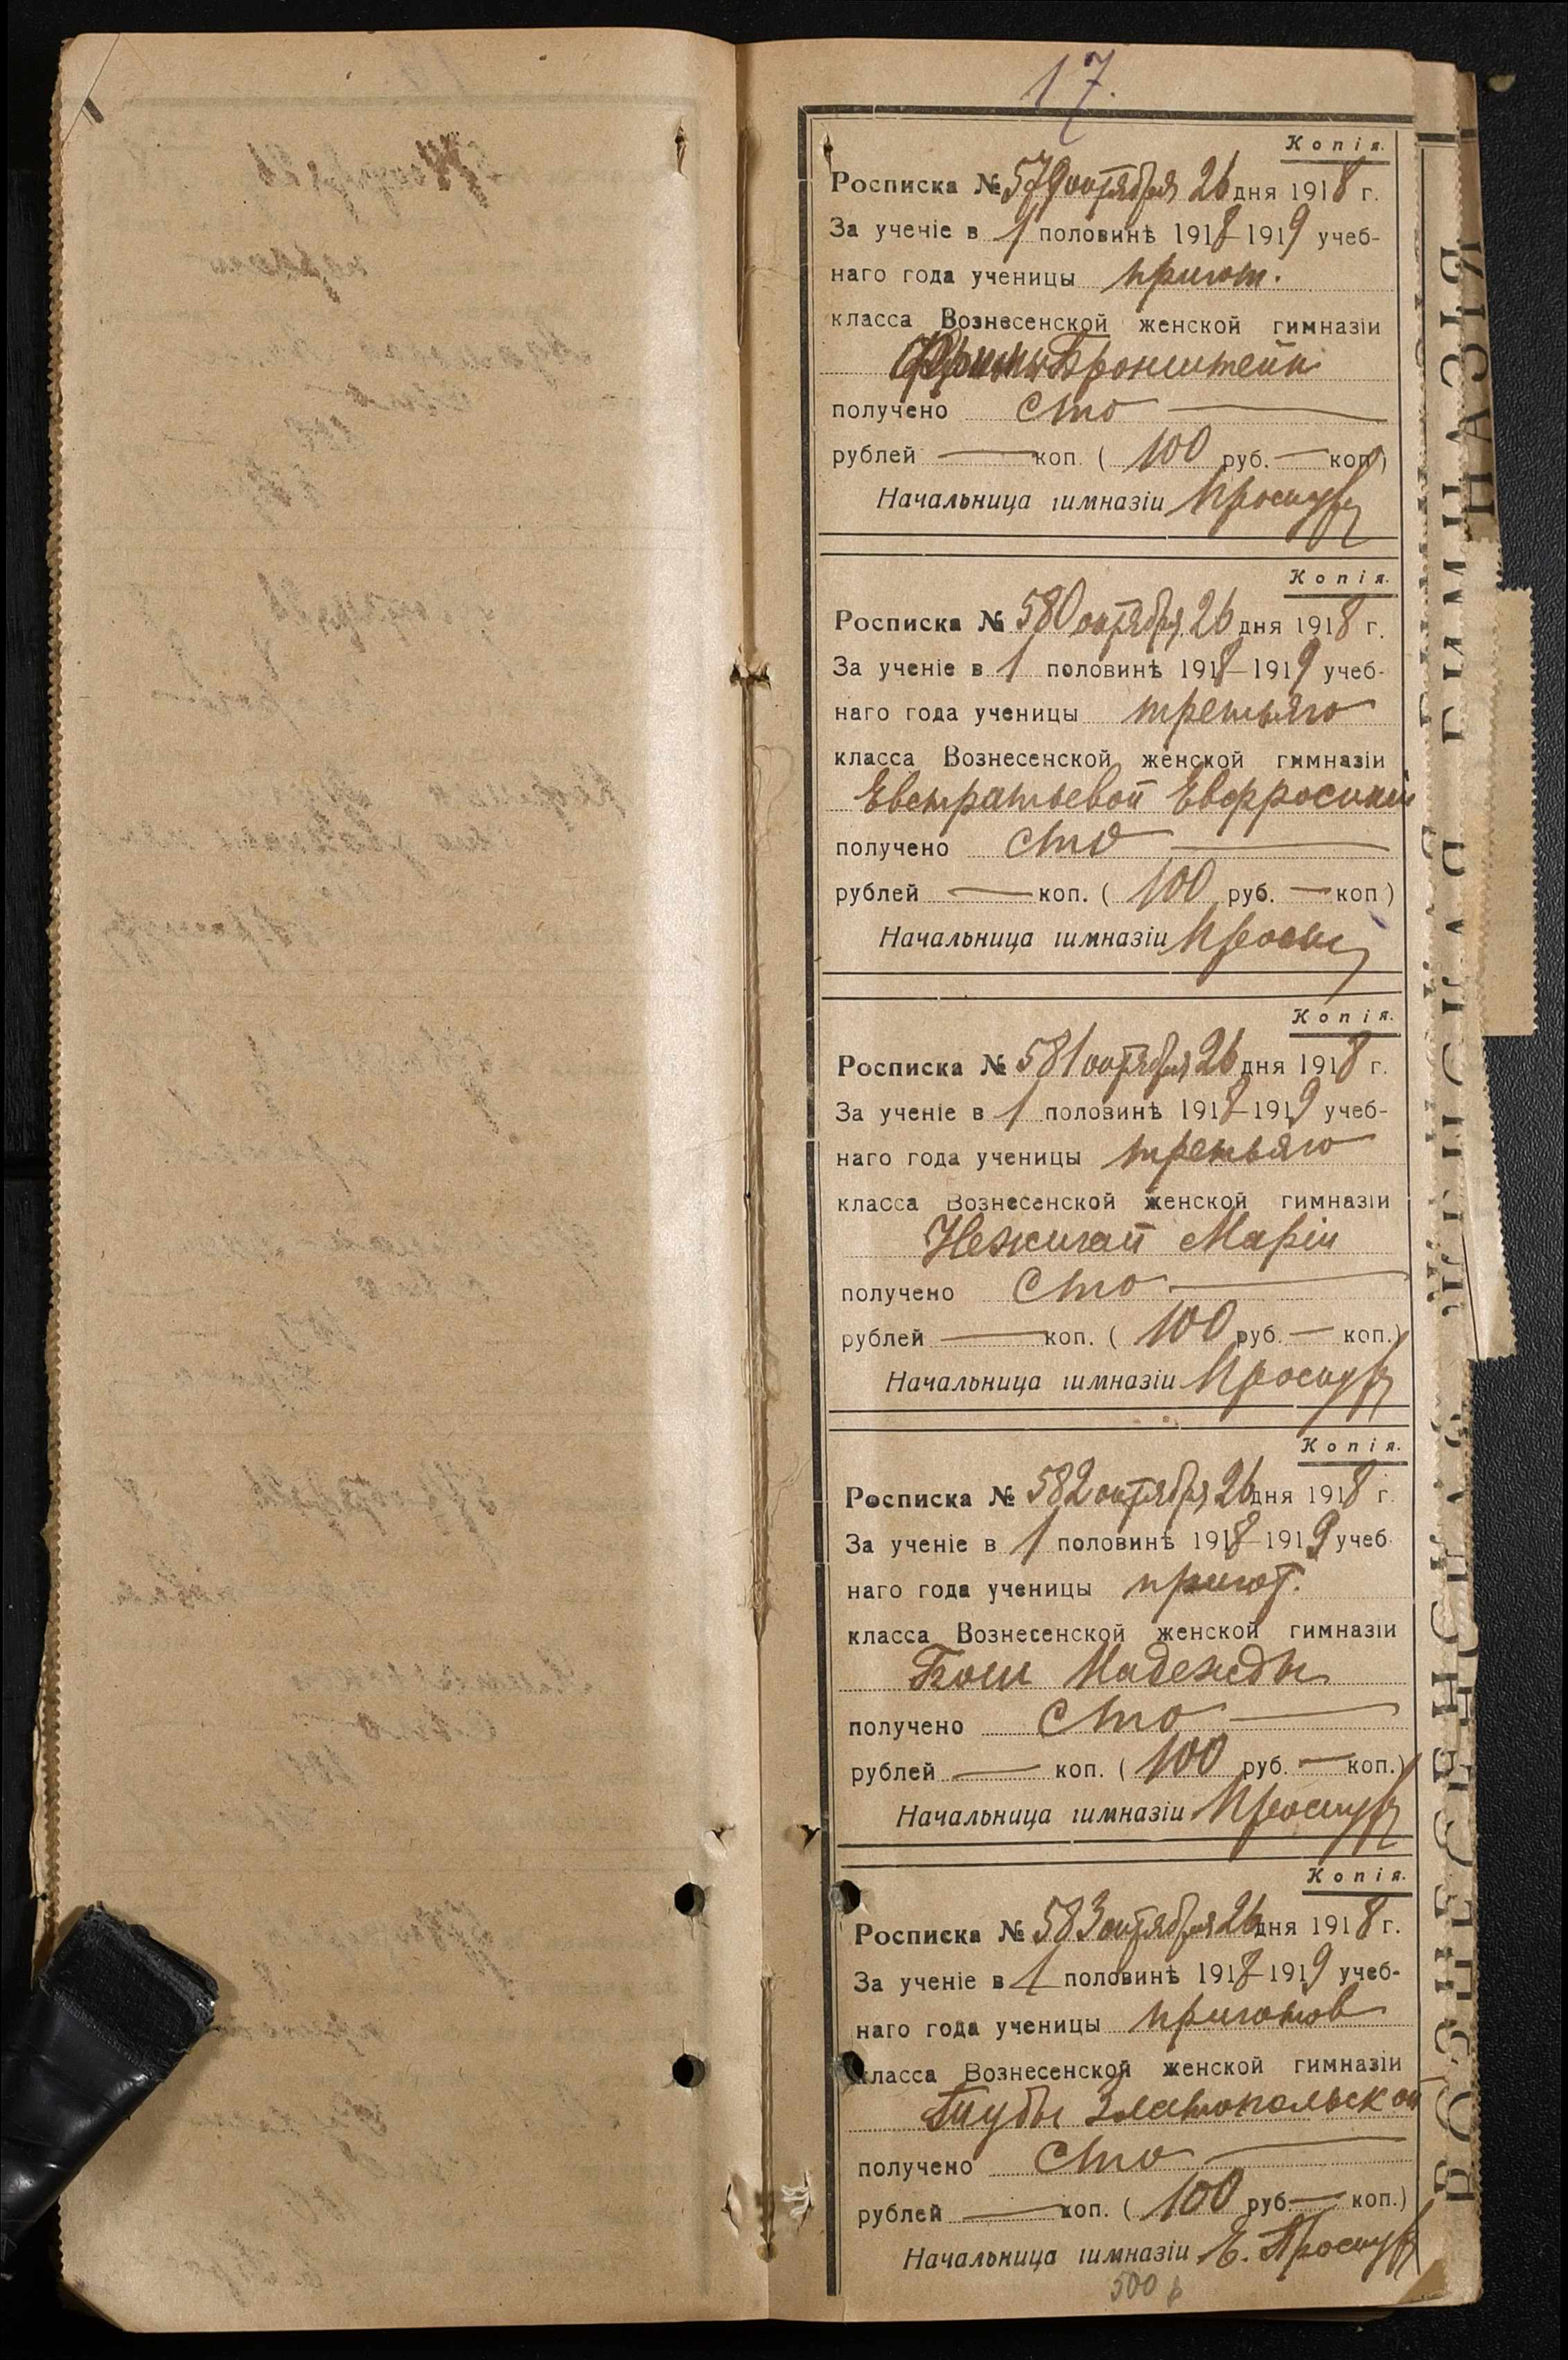 17.
Копія.
Росписка № 579 октября 26 дня 1918 г.
За ученіе в 1 половинѣ 1918-1919 учеб-
наго года ученицы пригот.
класса Вознесенской женской гимназіи
Бронштейн
получено сто
рублей — коп. ( 100 руб. — коп)
Начальница гимназіи
Копія.
Росписка № 580 октября 26 дня 1918 г.
За ученіе в 1 половинѣ 1918-1919 учеб-
наго года ученицы третьяго
класса Вознесенской женской гимназіи
Евстратьевой Евфросиніи
получено сто
рублей — коп. ( 100 руб. — коп)
Начальница гимназіи
Копія.
Росписка № 581 октября 26 дня 1918 г.
За ученіе в 1 половинѣ 1918-1919 учеб-
наго года ученицы третьяго
класса Вознесенской женской гимназіи
Нежигай Маріи
получено сто
рублей — коп. ( 100 руб. — коп.)
Начальница гимназіи
Копія.
Росписка № 582 октября 26 дня 1918 г.
За ученіе в 1 половинѣ 1918-1919 учеб
наго года ученицы пригот.
класса Вознесенской женской гимназіи
Бош Надежды
получено сто
рублей — коп. ( 100 руб. — коп.)
Начальница гимназіи
Копія.
Росписка № 583 октября 26 дня 1918 г.
За ученіе в 1 половинѣ 1918-1919 учеб-
наго года ученицы приготов
класса Вознесенской женской гимназіи
Златопольской
получено сто
рублей — коп. ( 100 руб. — коп.)
Начальница гимназіи Е.
500 р